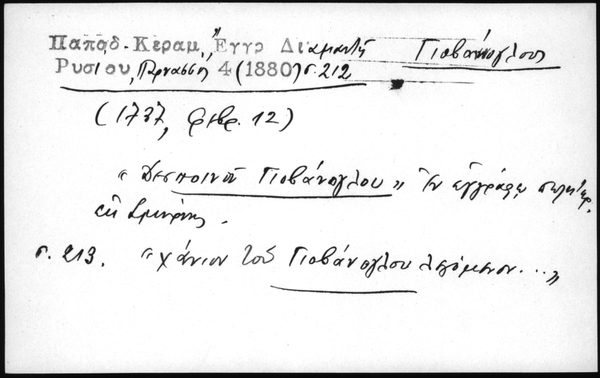 Παπαδ-Κεραμ, "Εγγρ Διαμαντῆ Γιοβάνογλου
Ρυσίου, Παρνασσὸς 4 (1880) σ. 212
(1737, φεβρ. 12)
"Δεσποινοῦ Γιοβάνογλου" Ἐν ἐγγράφῳ
ἐκ Σμύρνης.
σ. 213. "χάνιον τοῦ Γιοβάνογλου λεγόμενον..."